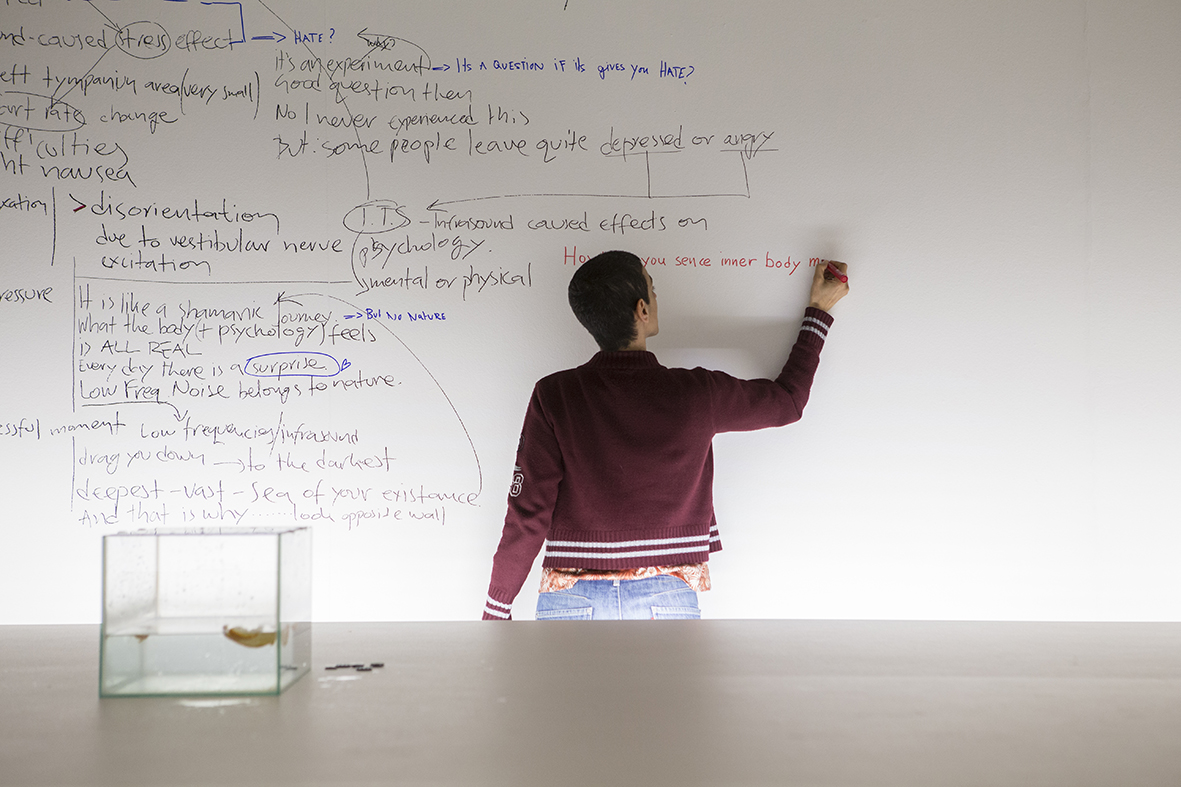 stress effect → HATE?
it's an experiment → ITS A QUESTION IF ITS GIVES YOU HATE?
Good question then
No I never experienced this
But: some people leave quite depressed or angry
tympaniun area (very small)
rate change
nausea
> disorientation
due to vestibular nerve
excitation
I.T.S - Infrasound caused effects on
psychology.
mental or physical
you sence inner body
It is like a shamanic Journey. → BUT NO NATURE
What the body (+ psychology) feels
is ALL REAL
Every day there is a surprise.
Low Freq. Noise belongs to nature.
moment Low frequencies/infrasound
drag you down → to the darkest
deepest - vast - sea of your existance
And that is why ........ look opposite wall
8